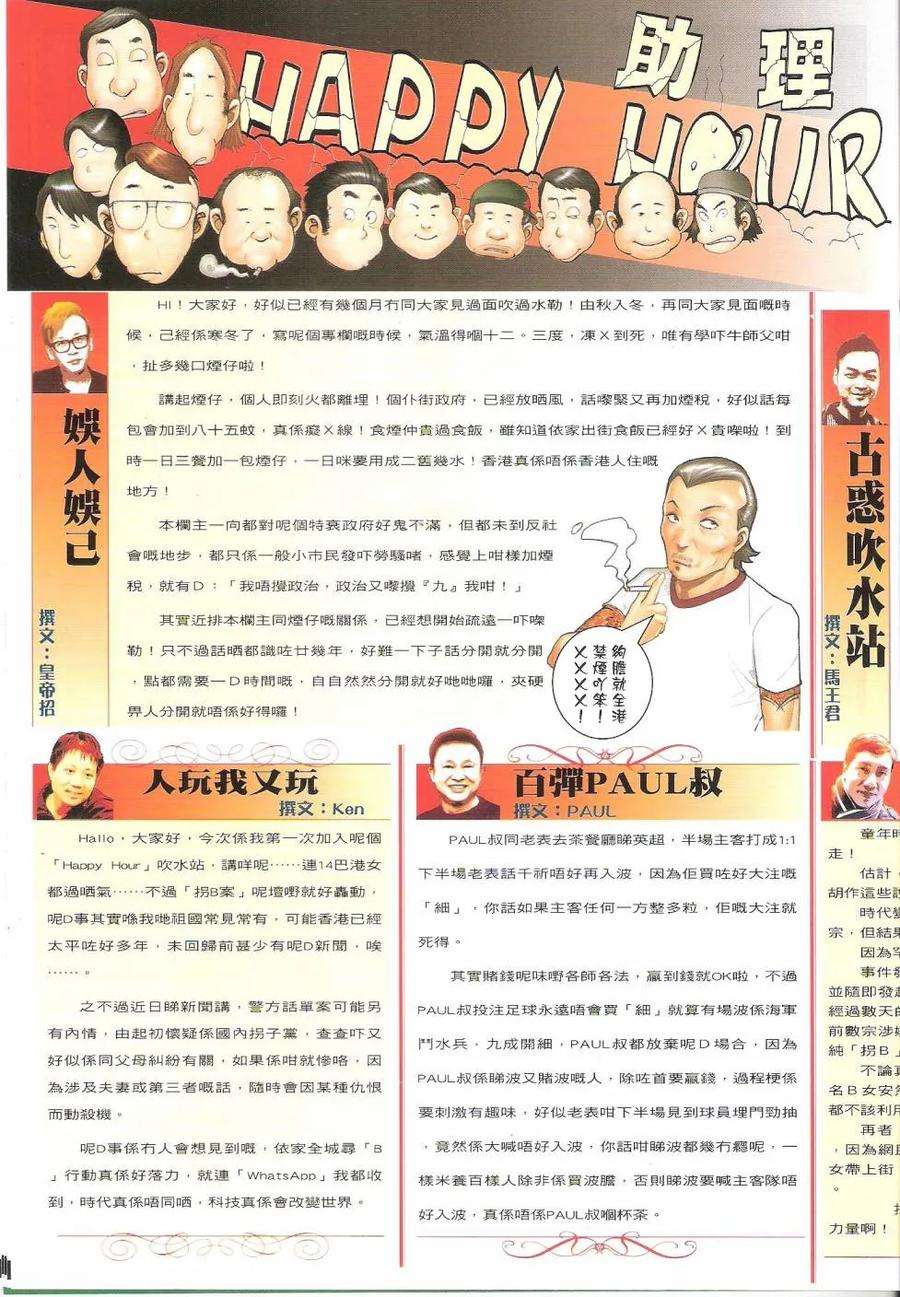 HAPPY HOUR
助理
娛人娛己
撰文：皇帝招
HI！大家好，好似已經有幾個月冇同大家見過面吹過水勒！由秋入冬，再同大家見面嘅時
候，己經係寒冬了，寫呢個專欄嘅時候，氣溫得嗰十二。三度，凍X到死，唯有學吓牛師父咁
，扯多幾口煙仔啦！
講起煙仔，個人即刻火都離埋！個仆街政府，已經放晒風，話嚟緊又再加煙稅，好似話每
包會加到八十五蚊，真係癡X線！食煙仲貴過食飯，雖知道依家出街食飯已經好X貴㗎啦！到
時一日三餐加一包煙仔，一日咪要用成二舊幾水！香港真係唔係香港人住嘅
地方！
本欄主一向都對呢個特衰政府好鬼不滿，但都未到反社
會嘅地步，都只係一般小市民發吓勞騷啫，感覺上咁樣加煙
稅，就有D：「我唔攪政治，政治又嚟攪『九』我咁！」
其實近排本欄主同煙仔嘅關係，已經想開始疏遠一吓㗎
勒！只不過話晒都識咗廿幾年，好難一下子話分開就分開
，點都需要一D時間嘅，自自然然分開就好哋哋囉，夾硬
畀人分開就唔係好得囉！
夠膽就全港
禁煙吖笨！
XXXX！
古惑吹水站
撰文：馬王君
人玩我又玩
撰文：Ken
Hallo，大家好，今次係我第一次加入呢個
「Happy Hour」吹水站，講咩呢……連14巴港女
都過晒氣……不過「拐B案」呢壇嘢就好轟動，
呢D事其實喺我哋祖國常見常有，可能香港已經
太平咗好多年，未回歸前甚少有呢D新聞，唉
……。
之不過近日睇新聞講，警方話單案可能另
有內情，由起初懷疑係國內拐子黨，查查吓又
好似係同父母糾紛有關，如果係咁就慘咯，因
為涉及夫妻或第三者嘅話，隨時會因某種仇恨
而動殺機。
呢D事係冇人會想見到嘅，依家全城尋「B
」行動真係好落力，就連「WhatsApp」我都收
到，時代真係唔同哂，科技真係會改變世界。
百彈PAUL叔
撰文：PAUL
PAUL叔同老表去茶餐廳睇英超，半場主客打成1:1
下半場老表話千祈唔好再入波，因為佢買咗好大注嘅
「細」，你話如果主客任何一方整多粒，佢嘅大注就
死得。
其實賭錢呢味嘢各師各法，贏到錢就OK啦，不過
PAUL叔投注足球永遠唔會買「細」就算有場波係海軍
鬥水兵，九成開細，PAUL叔都放棄呢D場合，因為
PAUL叔係睇波又賭波嘅人，除咗首要贏錢，過程梗係
要刺激有趣味，好似老表咁下半場見到球員埋門勁抽
，竟然係大喊唔好入波，你話咁睇波都幾冇癮呢，一
樣米養百樣人除非係買波膽，否則睇波要喊主客隊唔
好入波，真係唔係PAUL叔嗰杯茶。
童年時
走！
估計，
胡作這些說
時代變
宗，但結果
因為罕
事件發
並隨即發起
經過數天的
前數宗涉嫌
純「拐B」
不論真
名B女安然
都不該利用
再者，
，因為網民
女帶上街，
。
力量啊！